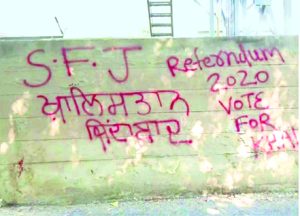 S.F.J
ਖਾਲਿਸਤਾਨ
ਜ਼ਿੰਦਾਬਾਦ
Referendum
2020
VOTE
FOR